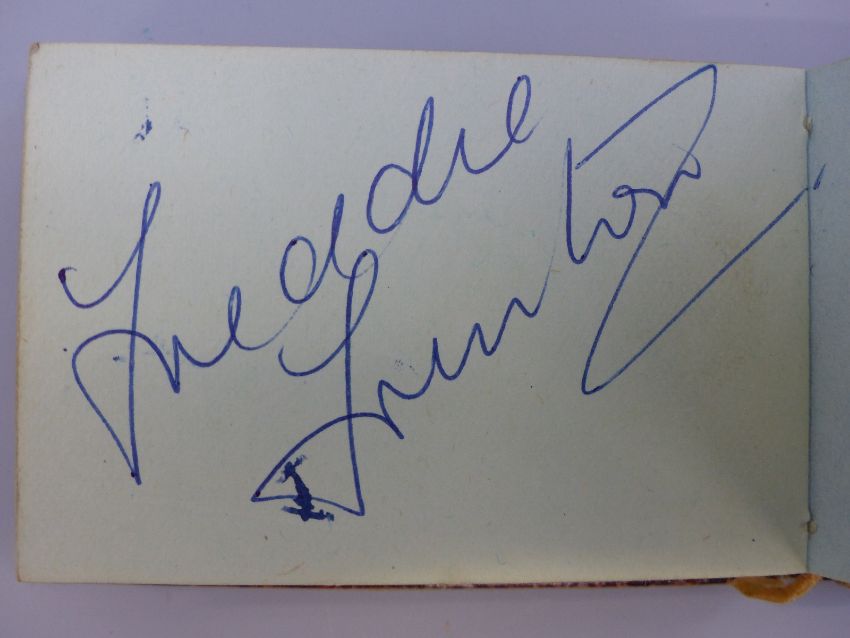 Freddie
Frinton